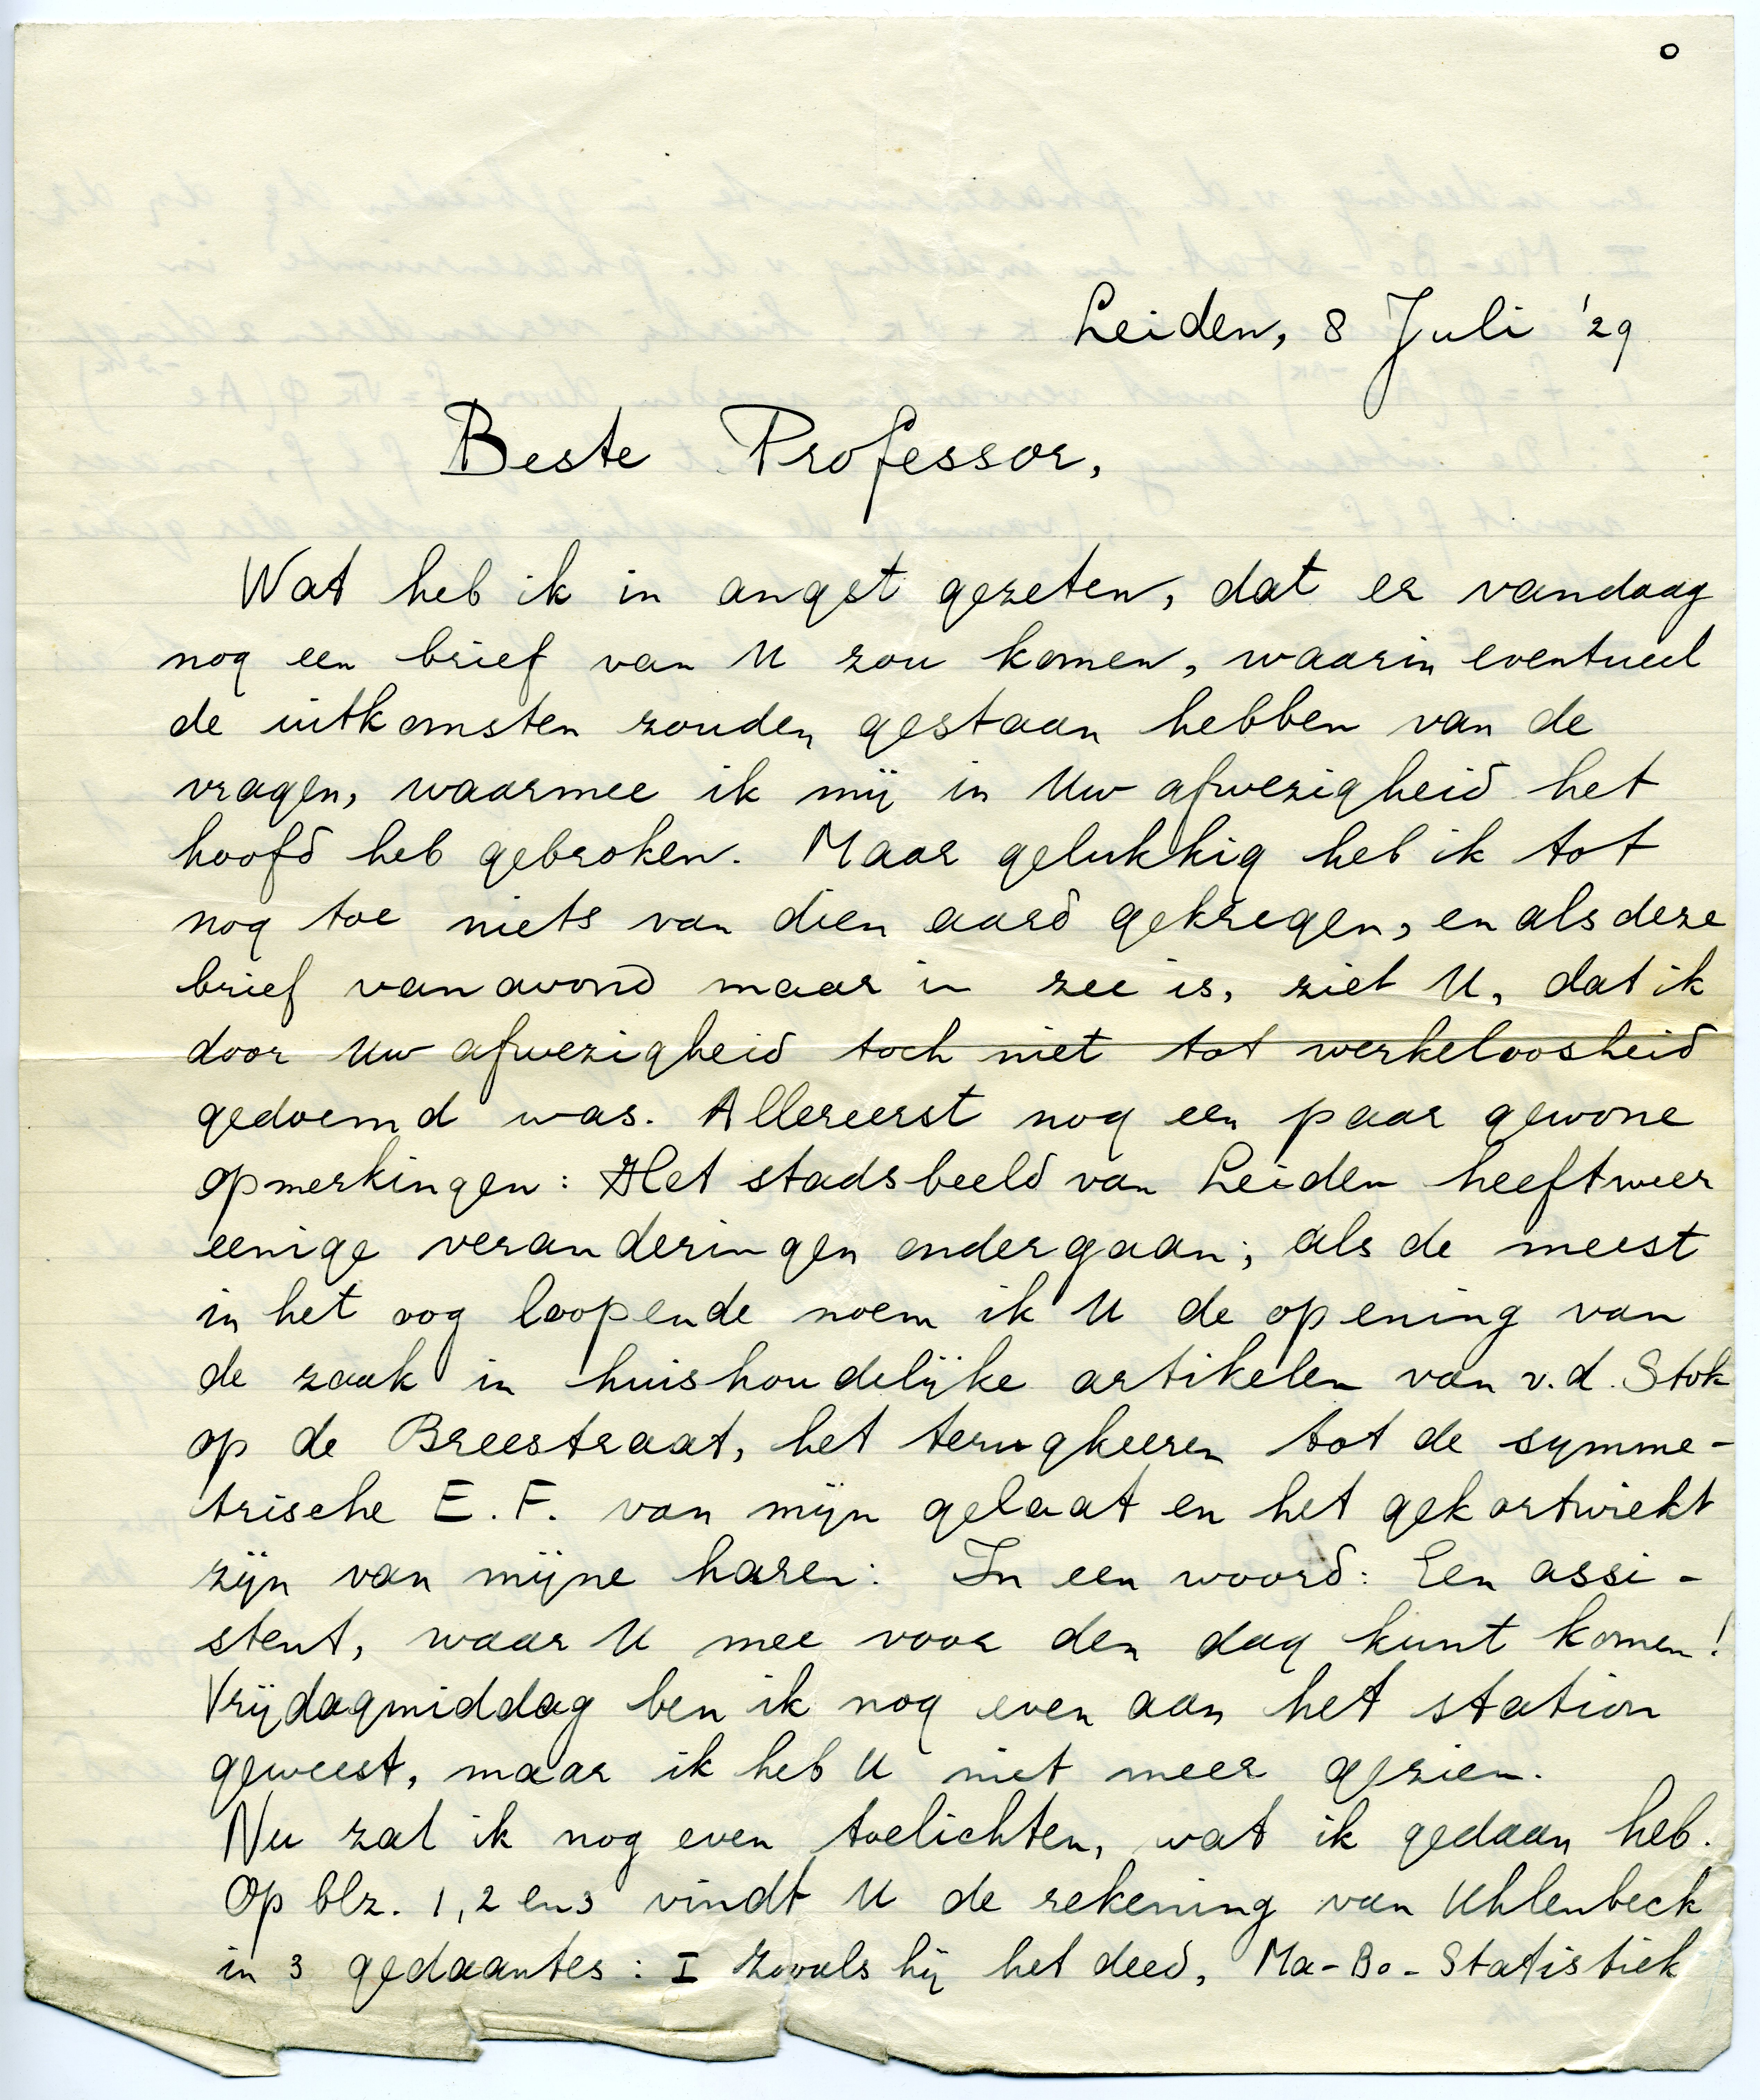 o
Leiden, 8 Juli '29
Beste Professor,
Wat heb ik in angst gezeten, dat er vandaag
nog een brief van U zou komen, waarin eventueel
de uitkomsten zouden gestaan hebben van de
vragen, waarmee ik mij in Uw afwezigheid het
hoofd heb gebroken. Maar gelukkig heb ik tot
nog toe niets van dien aard gekregen, en als deze
brief vanavond maar in zee is, ziet U, dat ik
door Uw afwezigheid toch niet tot werkeloosheid
gedoemd was. Allereerst nog een paar gewone
opmerkingen: Het stadsbeeld van Leiden heeft weer
eenige veranderingen ondergaan; als de meest
in het oog loopende noem ik U de opening van
de zaak in huishoudelijke artikelen van v.d. Stok
op de Breestraat, het terugkeeren tot de symme-
trische E.F. van mijn gelaat en het gekortwiekt
zijn van mijne haren. In een woord: Een assi-
stent, waar U mee voor den dag kunt komen!
Vrijdagmiddag ben ik nog even aan het station
geweest, maar ik heb U niet meer gezien.
Nu zal ik nog even toelichten, wat ik gedaan heb.
Op blz. 1, 2 en 3 vindt U de rekening van Uhlenbeck
in 3 gedaantes: I Zooals hij het deed, Ma-Bo-Statistiek